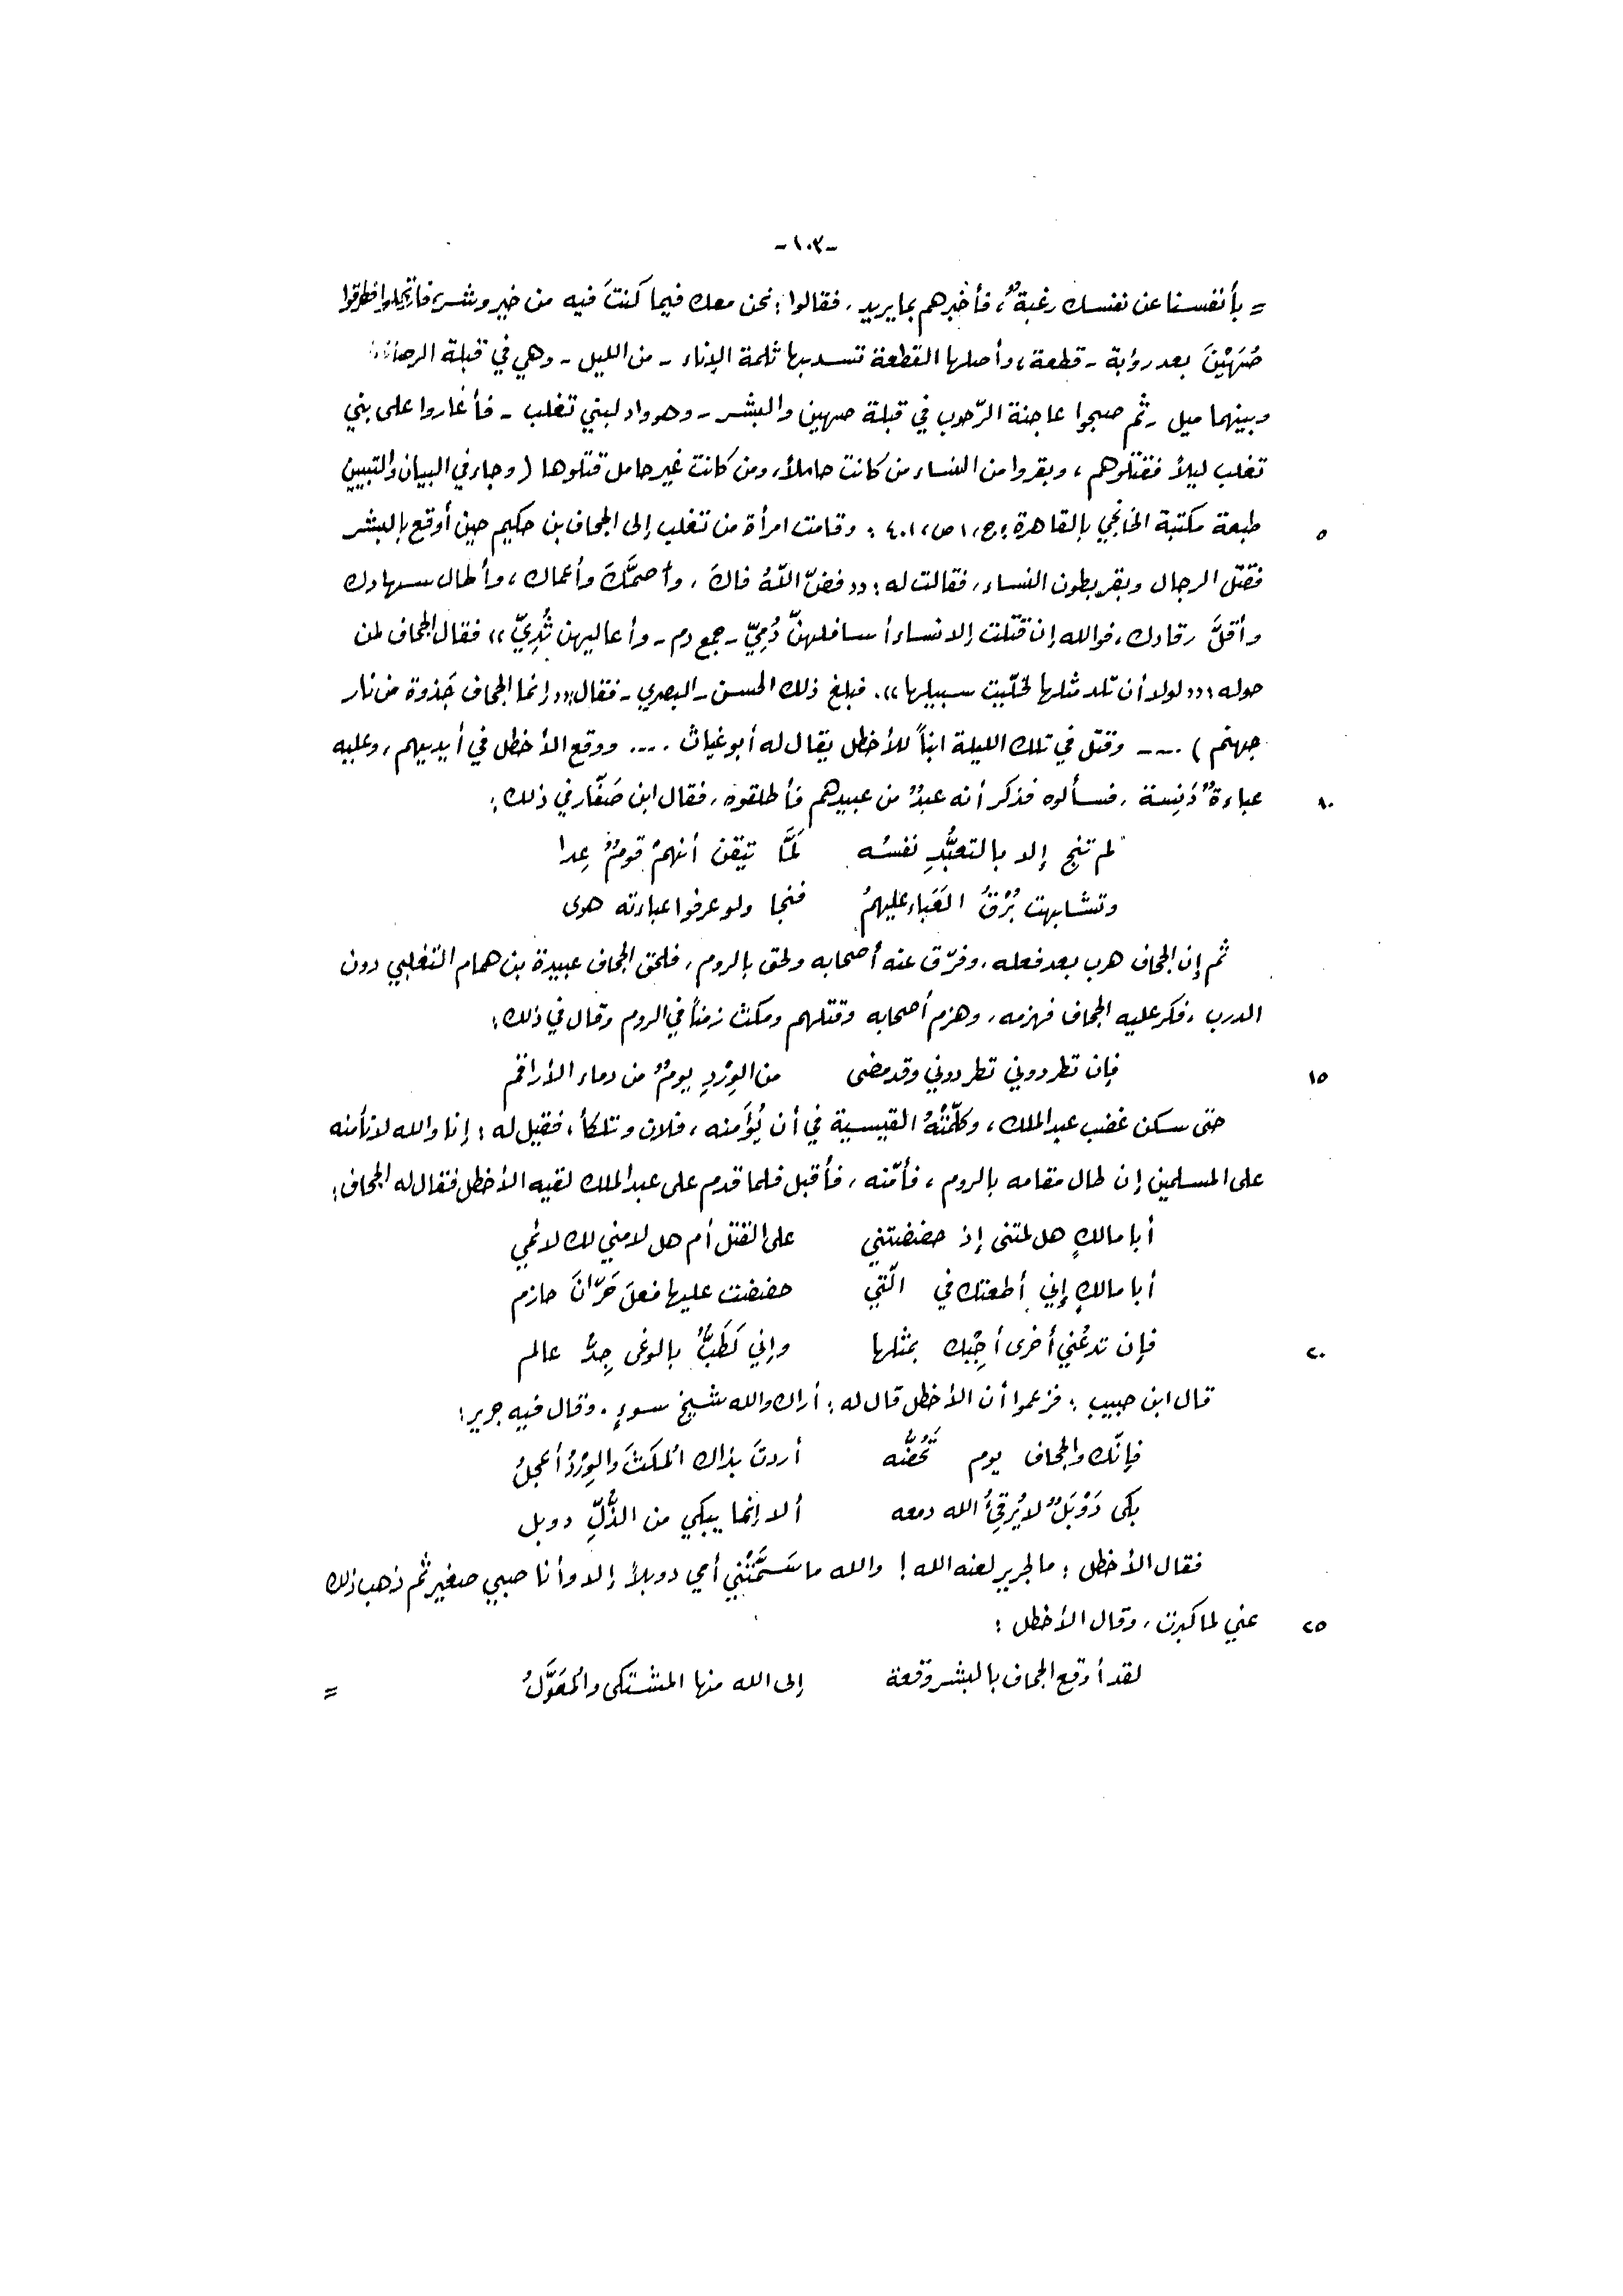 -١٠٣-
= بأنفسنا عن نفسك رغبةٌ، فأخبرهم بما يريد، فقالوا: نحن معك فيما كنتَ فيه من خير وشر، فارتحلوا فطرقوا
صُهَيْنَ بعد رؤبة - قطعة، وأصلها القطعة تسد بها ثلمة الإناء - من الليل - وهي في قبلة الرصافة
وبينهما ميل، ثم صبحوا عاجنة الرّحوب في قبلة صهين والبشر - وهو واد لبني تغلب - فأغاروا على بني
تغلب ليلاً فقتلوهم، وبقروا من النساء من كانت حاملاً، ومن كانت غير حامل قتلوها (وجاء في البيان والتبيين
٥ طبعة مكتبة الخانجي بالقاهرة: ج، ١ ص، ٤٠١: وقامت امرأة من تغلب إلى الجحاف بن حكيم حين أوقع بالبشر
فقتّل الرجال وبقر بطون النساء، فقالت له: «فضّ اللّهُ فاكَ، وأصمَّكَ وأعماك، وأطال سهادك
وأقلَّ رقادك، فوالله إن قتّلت إلا نساء أسافلهنّ دُمِيّ - جمع دم - وأعاليهن ثُدِيّ» فقال الجحاف لمن
حوله: «لولا أن تلد مثلها لخلّيت سبيلها». فبلغ ذلك الحسن - البصري - فقال: «إنما الجحاف جَذوة من نار
جهنم) .... وقتل في تلك الليلة ابناً للأخطل يقال له أبو غياث .... ووقع الأخطل في أيديهم، وعليه
١٠ عباءةٌ دَنِسة، فسألوه فذكر أنه عبدٌ من عبيدهم فأطلقوه، فقال ابن صَفّار في ذلك:
لم تنج إلا بالتعبُّدِ نفسُه لَمَّا تيقن أنهمُ قومٌ عِدا
وتشابهت بُرْقُ العَبَاء عليهمُ فنجا ولو عرفوا عباءته هوى
ثم إن الجحاف هرب بعد فعله، وفرّق عنه أصحابه ولحق بالروم، فلحق الجحاف عبيدة بن همام التغلبي دون
الدرب، فكر عليه الجحاف فهزمه، وهزم أصحابه وقتلهم ومكث زمناً في الروم وقال في ذلك:
١٥ فإن تطردوني تطردوني وقد مضى من الوِرْدِ يومٌ من دماء الأراقم
حتى سكن غضب عبد الملك، وكلّمتْهُ القيسية في أن يُؤَمنه، فلان وتلكأ، فقيل له: إنا والله لا نأمنه
على المسلمين إن طال مقامه بالروم، فأمّنه، فأقبل فلما قدم على عبد الملك لقيه الأخطل فقال له الجحاف:
أبا مالكٍ هل لمتنى إذ حضضتني على القتل أم هل لامني لك لائمي
أبا مالكٍ إني أطعتك في الّتي حضضت عليها فعلَ حَرّانَ حازم
٢٠ فإن تدعُني أخرى أجِبْك بمثلها وإني لَطَبٌّ بالوغى جِدُّ عالم
قال ابن حبيب: فزعموا أن الأخطل قال له: أراك والله شيخ سوءٍ. وقال فيه جرير:
فإنّك والجحاف يوم تَحُضُّه أردتَ بذاك المُكثَ والوِرْدُ أعجلُ
بكى دَوْبَلٌ لا يُرقِئُ الله دمعه ألا إنما يبكي من الذُّلِّ دوبل
فقال الأخطل: ما لجرير لعنه الله! والله ما سَمَّتْني أمي دوبلاً إلا وأنا صبي صغير ثم ذهب ذلك
٢٥ عني لما كبرت، وقال الأخطل:
لقد أوقع الجحاف بالبشر وقعة إلى الله منها المشتكى والمُعَوَّلُ =